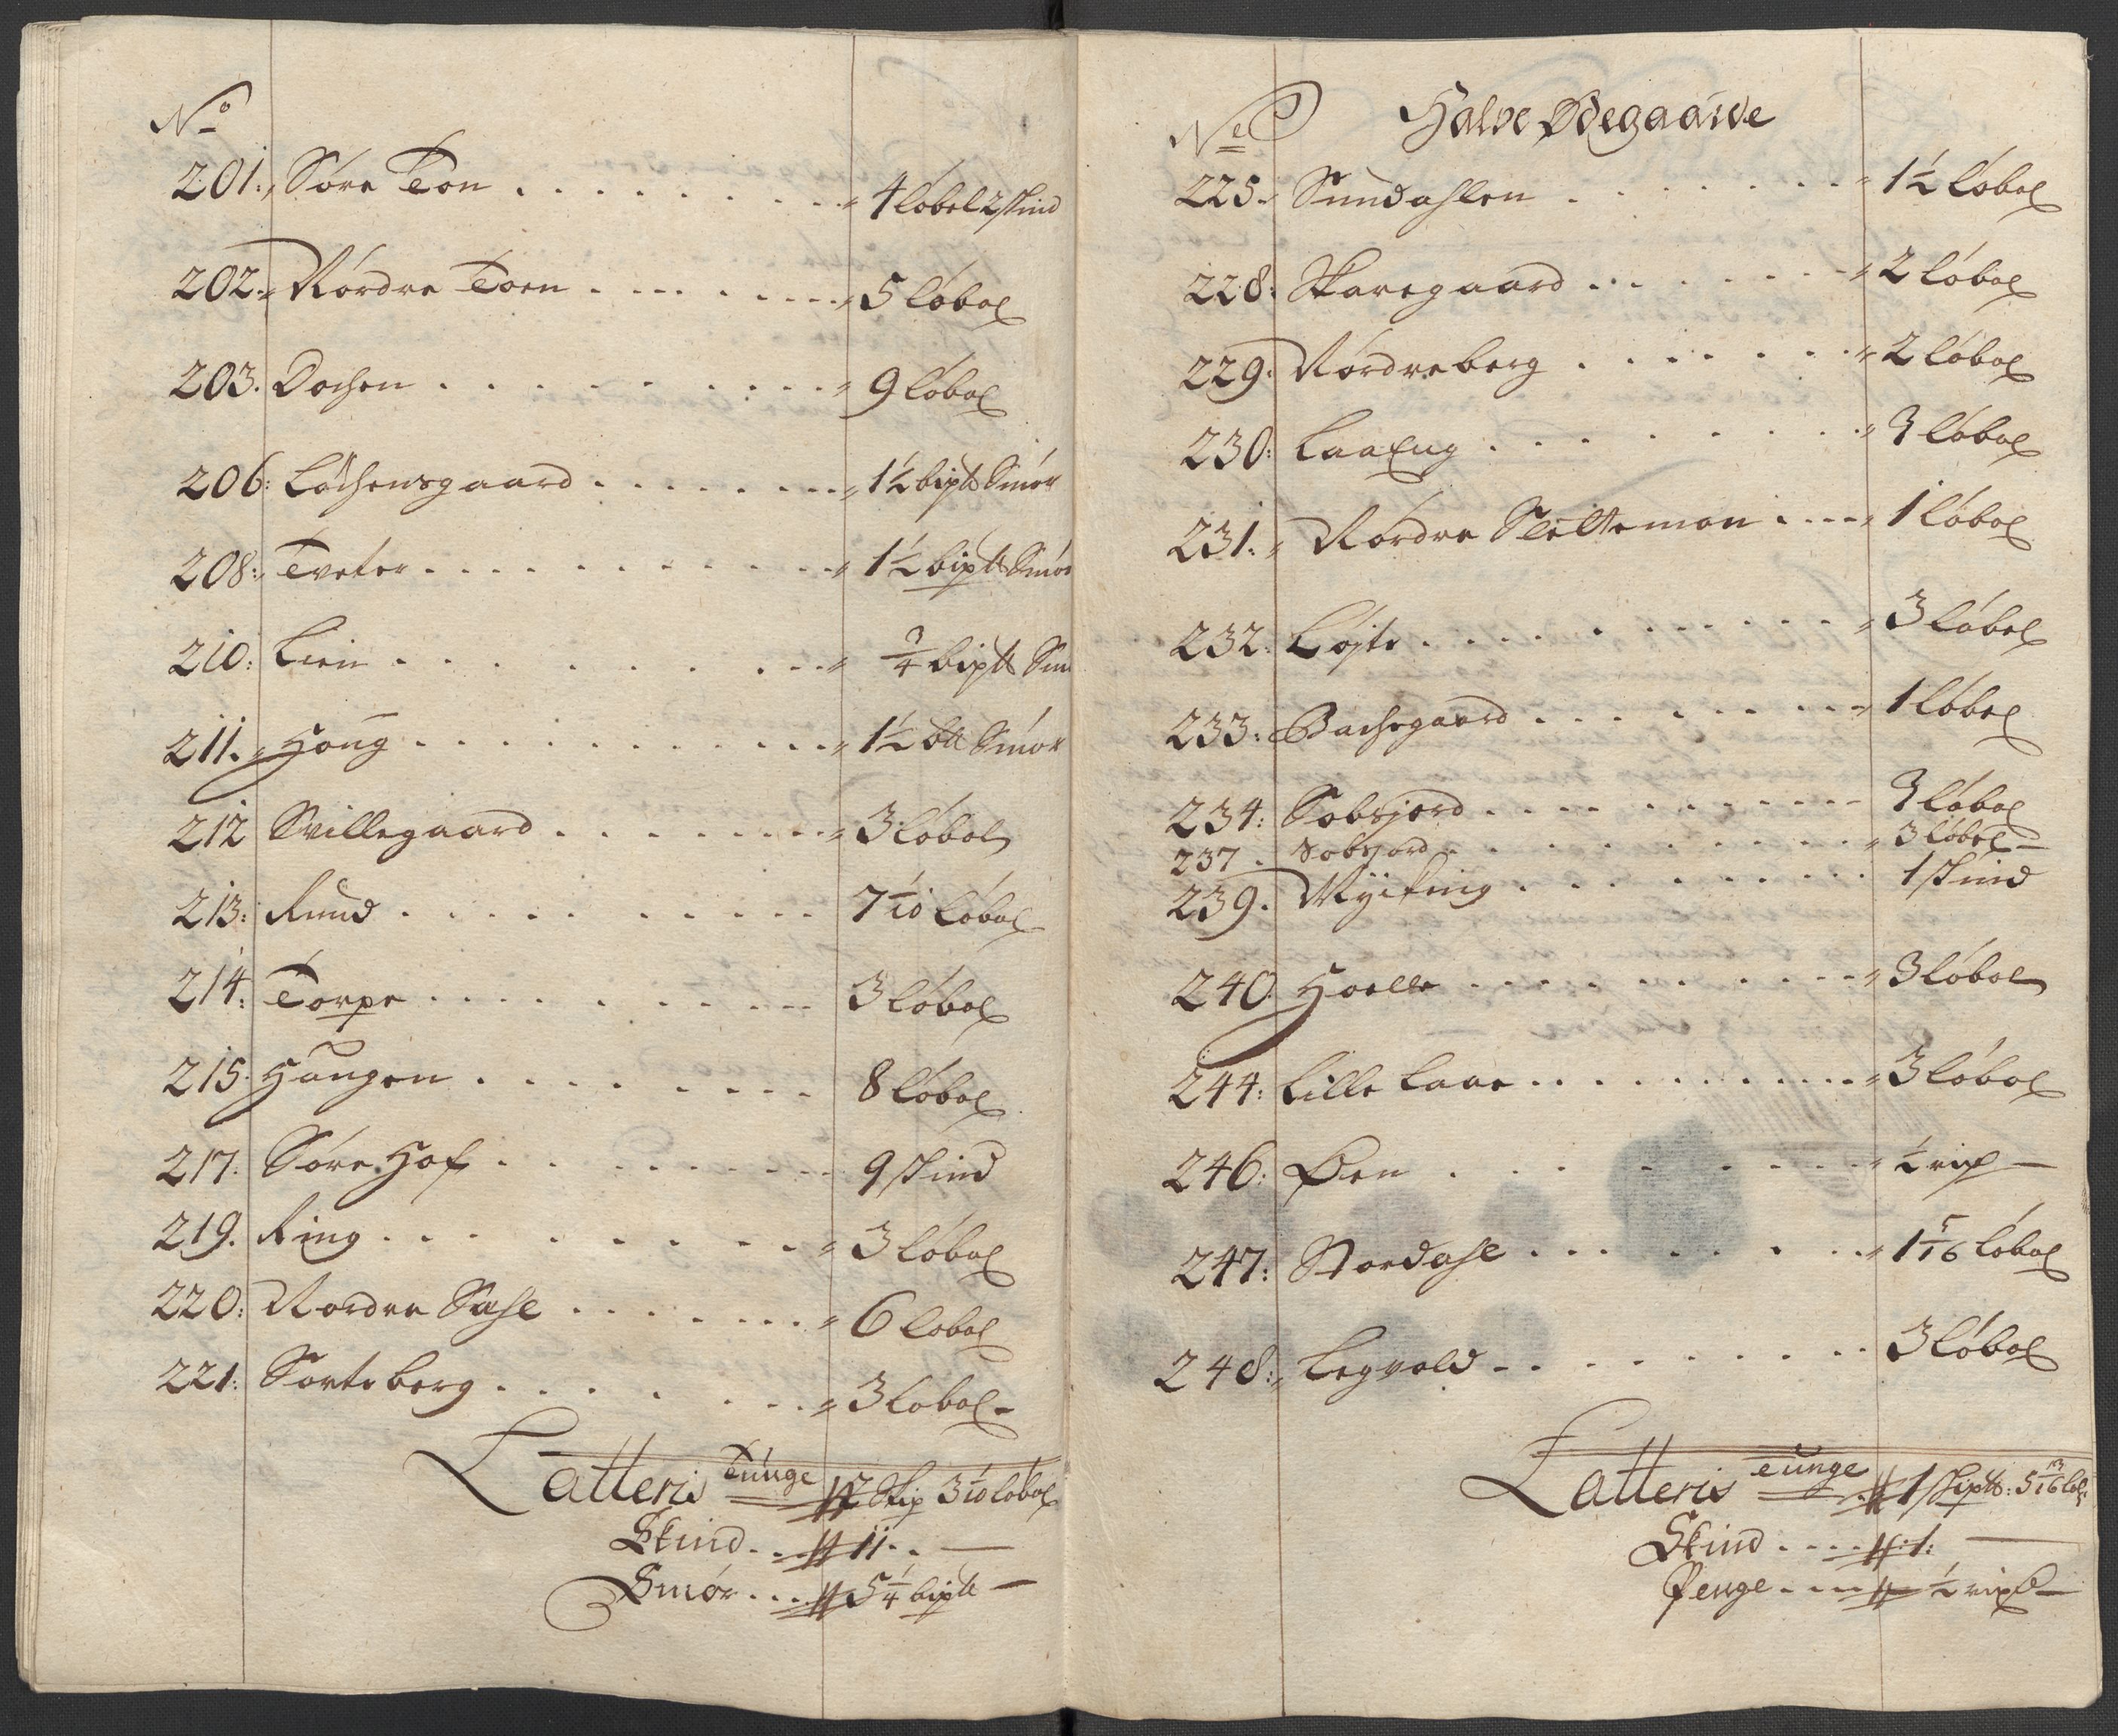 No
201. Søre Ton . . . . . . . . . 4 løbol 2 skind
202. Nordre Toen . . . . . . . . 5 løbol
203. Dochen . . . . . . . . . 9 løbol
206: Løchensgaard . . . . . . . . 1½ bip℔ Smør
208: Tveter . . . . . . . . . . 1½ bip℔ Smør
210: Lien . . . . . . . . . ¾ bip℔ Sm
211. Houg . . . . . . . . . . 1½ b℔ Smør
212 Svillegaard . . . . . . . . 3 løbol
213: Rund . . . . . . . . . 7 1/10 løbol
214: Torpe . . . . . . . . . 3 løbol
215. Haugen . . . . . . . . 8 løbol
217. Søre Hof . . . . . . . . 9 skind
219. Ring . . . . . . . . . 3 løbol
220: Nordre Sahl . . . . . . . 6 løbol
221: Sorteberg . . . . . . . . 3 løbol
Latteris Tunge 12 Skip 3 1/10 løbol
Skind . . . 11 . . —
Smør . . . 5¼ bip℔ —
No Halve Ødegaarde
225. Sundahlen . . . . . . . 1½ løbol
228. Skaregaard . . . . . . . . 2 løbol
229. Nordreberg . . . . . . . 2 løbol
230: LaaEng . . . . . . . . . 3 løbol
231. Nordre Slettemon . . . . 1 løbol
232. Løjte . . . . . . . . . . 3 løbol
233: Bachegaard . . . . . . . . . 1 løbol
234: Sobsjord . . . . . . . . . . 3 løbol
237 . Sobsjord . . . . . . . . . 3 løbol
239. Myiking . . . . . . . . . 1 skind
240. Hoelle . . . . . . . . . . 3 løbol
244: Lille Laae . . . . . . . . . . 3 løbol
246: Øen . . . . . . . . . ½ rip —
247: Stordahl . . . . . . . . 1 5/16 løbol
248: Legvold . . . . . . . . 3 løbol
Latteris Tunge 1 skip℔: 5 13/16 løb:
Skind . . . . 1: —
Penge . . . . ½ rip —